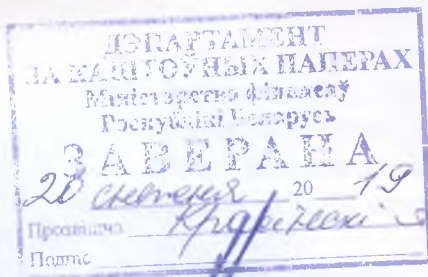 ДЭПАРТАМЕНТ
ПА КАШТОЎНЫХ ПАПЕРАХ
Міністэрства фінансаў
Рэспублікі Беларусь
ЗАВЕРАНА
20 20 19
Прозвішча
Подпіс